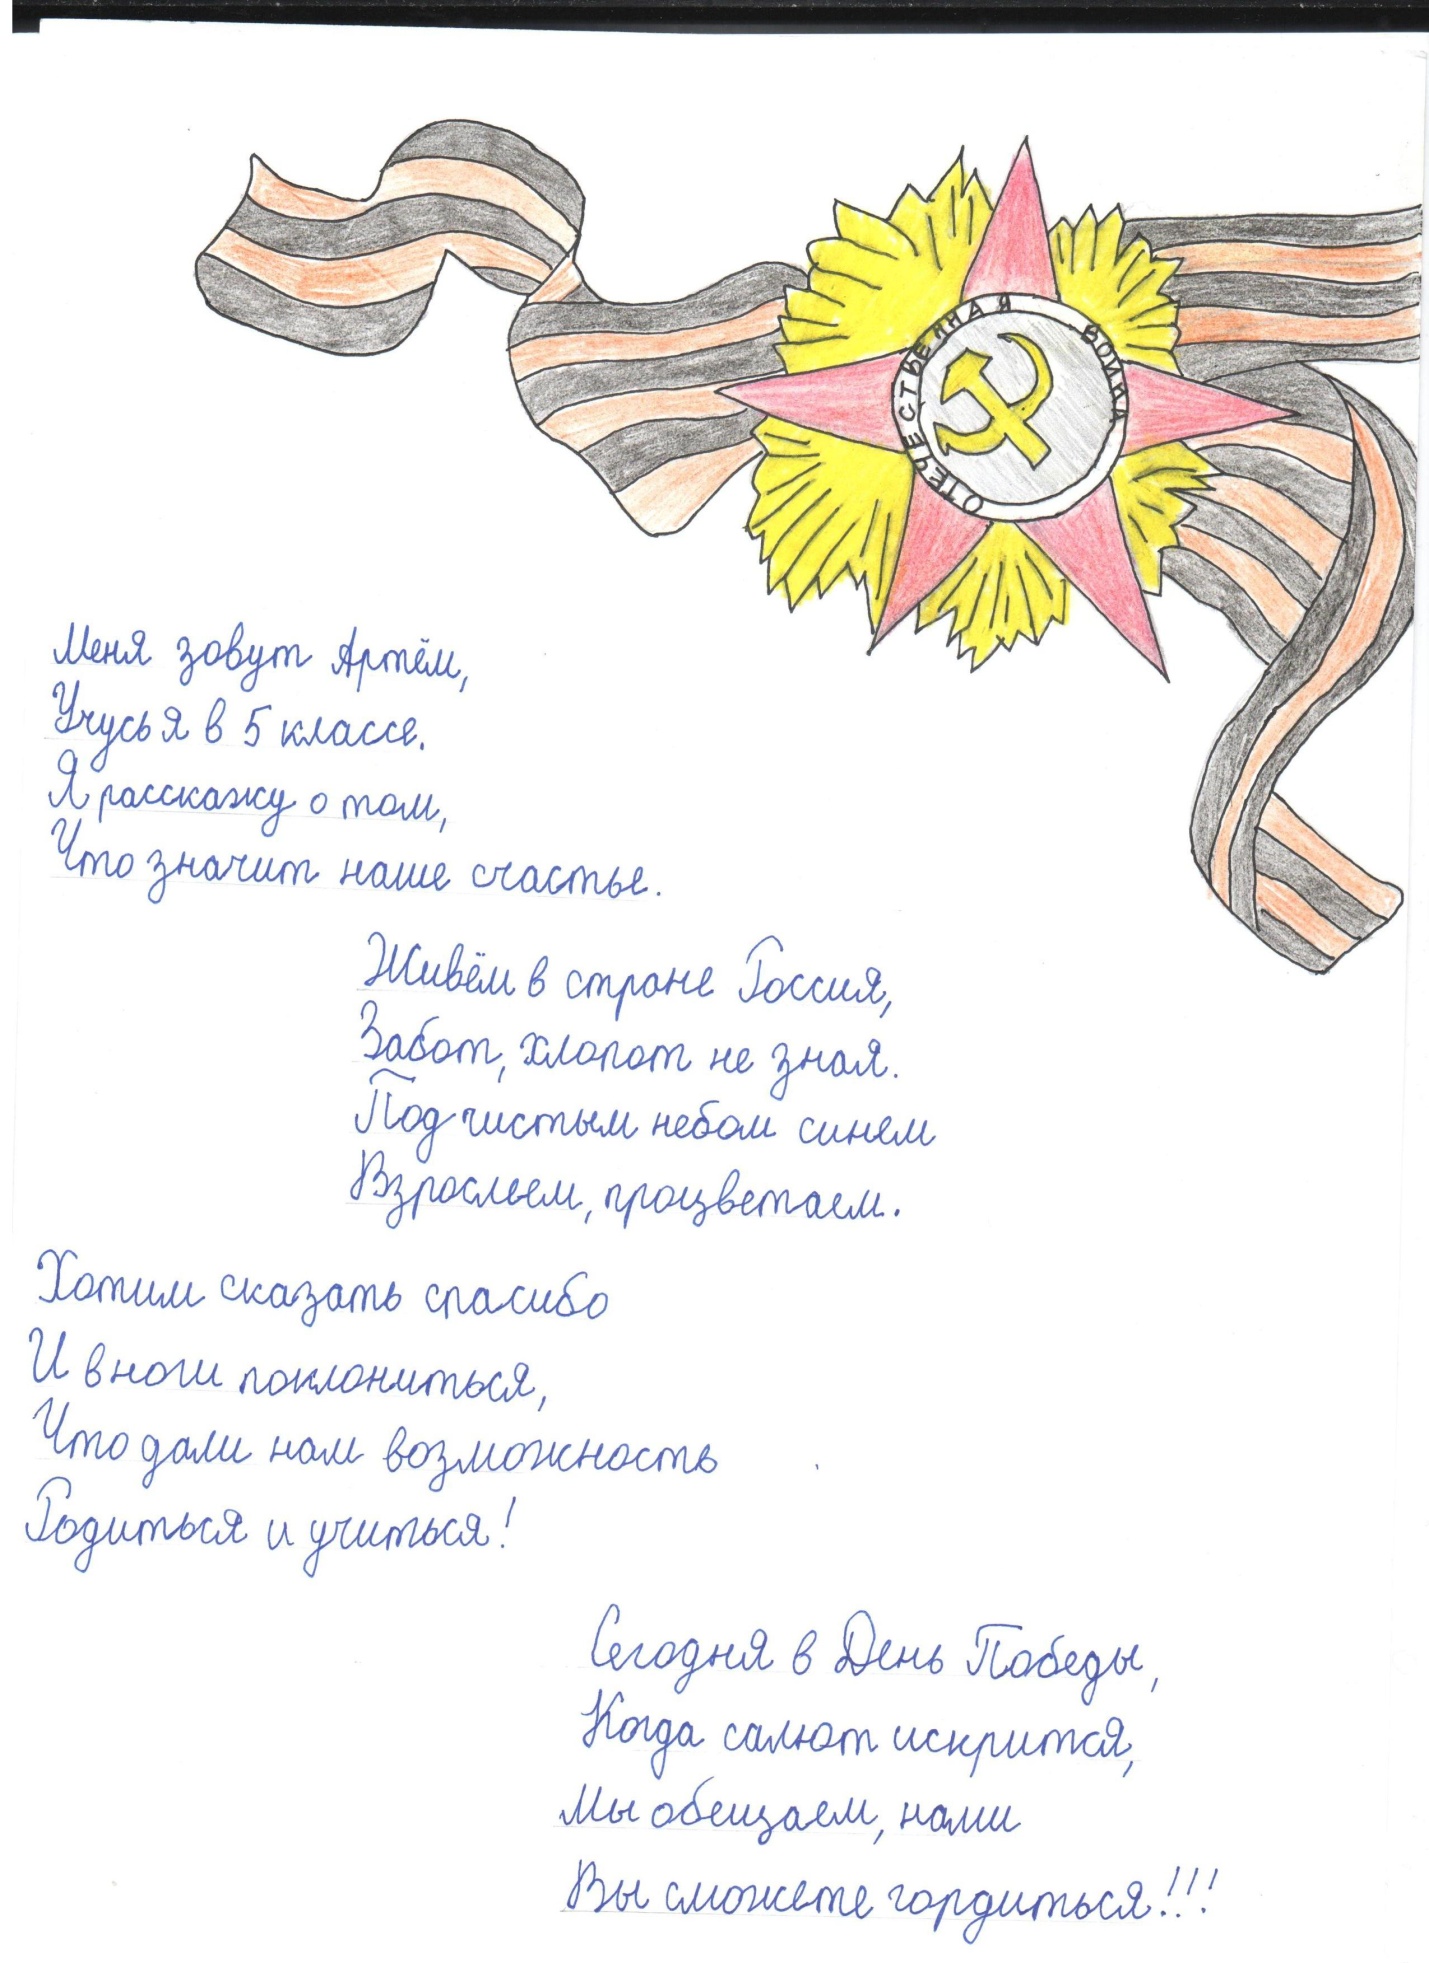 ОТЕЧЕСТВЕННАЯ ВОЙНА
Меня зовут Артём,
Учусь я в 5 классе.
Я расскажу о том,
Что значит наше счастье.
Живём в стране Россия,
Забот, хлопот не зная.
Под чистым небом синем
Взрослеем, процветаем.
Хотим сказать спасибо
И в ноги поклониться,
Что дали нам возможность
Родиться и учиться!
Сегодня в День Победы,
Когда салют искрится,
Мы обещаем, нами
Вы сможете гордиться!!!